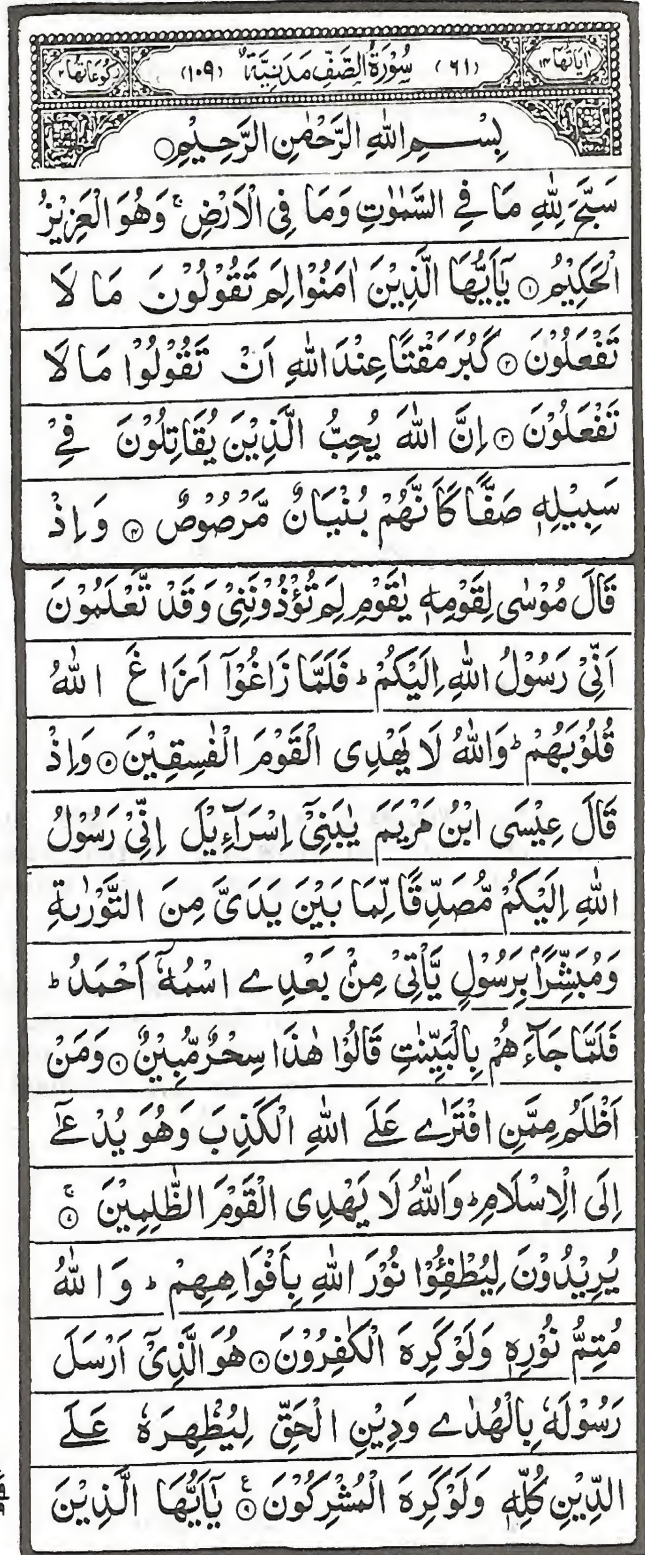 اٰيَاتُهَا ١٤ (٦١) سُوْرَةُ الصَّفِّ مَدَنِيَّةٌ (١٠٩) رُكُوْعَاتُهَا ٢
بِسْمِ اللهِ الرَّحْمٰنِ الرَّحِيْمِ
سَبَّحَ لِلّٰهِ مَا فِے السَّمٰوٰتِ وَمَا فِى الْاَرْضِ ۚ وَهُوَ الْعَزِيْزُ
الْحَكِيْمُ ۝١ يٰۤاَيُّهَا الَّذِيْنَ اٰمَنُوْا لِمَ تَقُوْلُوْنَ مَا لَا
تَفْعَلُوْنَ ۝٢ كَبُرَ مَقْتًا عِنْدَ اللهِ اَنْ تَقُوْلُوْا مَا لَا
تَفْعَلُوْنَ ۝٣ اِنَّ اللهَ يُحِبُّ الَّذِيْنَ يُقَاتِلُوْنَ فِےْ
سَبِيْلِهٖ صَفًّا كَاَنَّهُمْ بُنْيَانٌ مَّرْصُوْصٌ ۝٤ وَاِذْ
قَالَ مُوْسٰى لِقَوْمِهٖ يٰقَوْمِ لِمَ تُؤْذُوْنَنِىْ وَقَدْ تَّعْلَمُوْنَ
اَنِّىْ رَسُوْلُ اللهِ اِلَيْكُمْ ؕ فَلَمَّا زَاغُوْۤا اَزَاغَ اللهُ
قُلُوْبَهُمْ ؕ وَاللهُ لَا يَهْدِى الْقَوْمَ الْفٰسِقِيْنَ ۝٥ وَاِذْ
قَالَ عِيْسَى ابْنُ مَرْيَمَ يٰبَنِىْۤ اِسْرَآءِيْلَ اِنِّىْ رَسُوْلُ
اللهِ اِلَيْكُمْ مُّصَدِّقًا لِّمَا بَيْنَ يَدَىَّ مِنَ التَّوْرٰىةِ
وَمُبَشِّرًۢا بِرَسُوْلٍ يَّاْتِىْ مِنْۢ بَعْدِے اسْمُهٗۤ اَحْمَدُ ؕ
فَلَمَّا جَآءَهُمْ بِالْبَيِّنٰتِ قَالُوْا هٰذَا سِحْرٌ مُّبِيْنٌ ۝٦ وَمَنْ
اَظْلَمُ مِمَّنِ افْتَرٰے عَلَے اللهِ الْكَذِبَ وَهُوَ يُدْعٰۤے
اِلَى الْاِسْلَامِ ؕ وَاللهُ لَا يَهْدِى الْقَوْمَ الظّٰلِمِيْنَ ۝٧ۚ
يُرِيْدُوْنَ لِيُطْفِـُٔوْا نُوْرَ اللهِ بِاَفْوَاهِهِمْ ؕ وَاللهُ
مُتِمُّ نُوْرِهٖ وَلَوْ كَرِهَ الْكٰفِرُوْنَ ۝٨ هُوَ الَّذِىْۤ اَرْسَلَ
رَسُوْلَهٗ بِالْهُدٰے وَدِيْنِ الْحَقِّ لِيُظْهِرَهٗ عَلَے
الدِّيْنِ كُلِّهٖ وَلَوْ كَرِهَ الْمُشْرِكُوْنَ ۝٩ۧ يٰۤاَيُّهَا الَّذِيْنَ